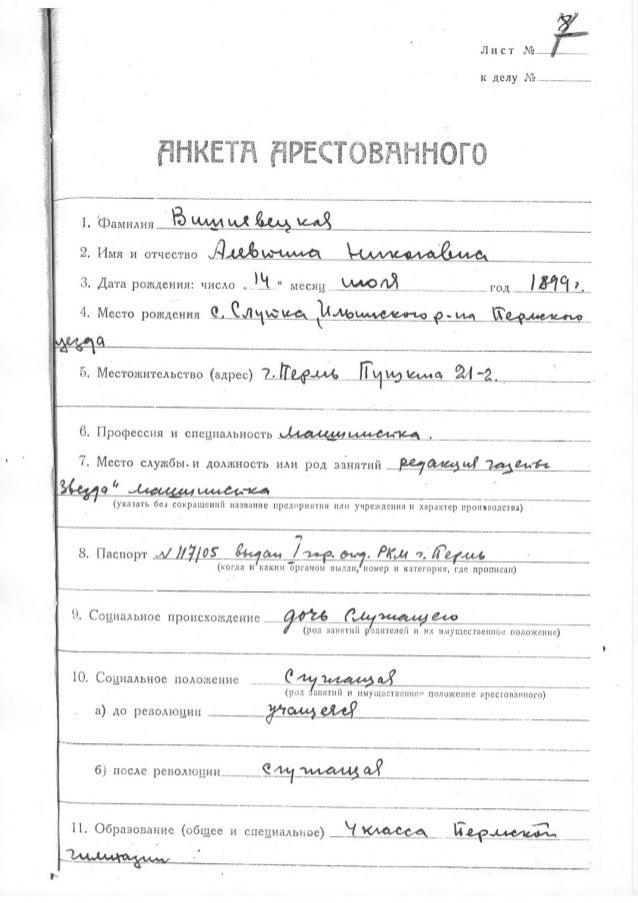 Лист №
8
к делу №
АНКЕТА АРЕСТОВАННОГО
1. Фамилия Вишневецкая
2. Имя и отчество Алевтина Николавна
3. Дата рождения: число „14“ месяц июля год 1899 г.
4. Место рождения с. Слудка, Ильинского р-на Пермского
уезда
5. Местожительство (адрес) г. Пермь Пушкина 21-2.
6. Профессия и специальность машинистка.
7. Место службы и должность или род занятий редакция газеты
Звезда" машинистка
(указать без сокращений название предприятия или учреждения и характер производства)
8. Паспорт № 117105 выдан 7 гор. отд. РКМ г. Пермь
(когда и каким органом выдан, номер и категория, где прописан)
9. Социальное происхождение дочь служащего
(род занятий родителей и их имущественное положение)
10. Социальное положение Служащая
(род занятий и имущественное положение арестованного)
а) до революции учащаяся
б) после революции служащая
11. Образование (общее и специальное) 4 класса Пермской
гимназии